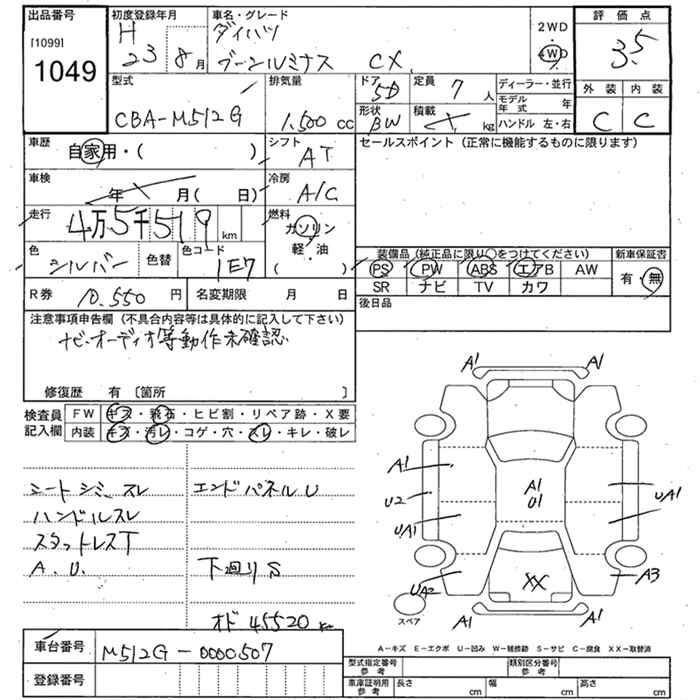 出品番号
[1099]
1049
初度登録年月
H 23 8月
車名・グレード
ダイハツ
ブーンルミナス CX
2WD
・
4WD
評価点
3.5
外装 内装
C C
型式
CBA-M512G
排気量
1,500 cc
ドア
5D
定員 7 人
形状
BW
積載 kg
ディーラー・並行
モデル年式 年
ハンドル 左・右
車歴
自家用・( )
シフト
AT
セールスポイント(正常に機能するものに限ります)
車検
年 月( 日)
冷房
A/C
走行
4万5千519 km
燃料
ガソリン
軽・油
( )
色
シルバー
色替
色コード
1E7
装備品(純正品に限り○をつけてください)
PS PW ABS エアB AW
SR ナビ TV カワ
新車保証書
有・無
R券 10,550 円
名変期限 月 日
後日品
注意事項申告欄(不具合内容等は具体的に記入して下さい)
ナビ・オーディオ等動作未確認
修復歴 有〔箇所 〕
検査員記入欄
FW キズ・飛石・ヒビ割・リペア跡・X要
内装 キズ・汚レ・コゲ・穴・スレ・キレ・破レ
シートシミ、スレ
ハンドルスレ
スタットレスT
A.U.
エンドパネルU
下廻りS
オド 45520 km
A1 A1
A1
U2
UA1
UA2
A1
U1
UA1
A3
XX
A1 A1
スペア
A-キズ E-エクボ U-凹み W-補修跡 S-サビ C-腐食 XX-取替済
車台番号
M512G-0000507
登録番号
型式指定番号
参考
類別区分番号
参考
車庫証明用
参考
長さ cm
幅 cm
高さ cm